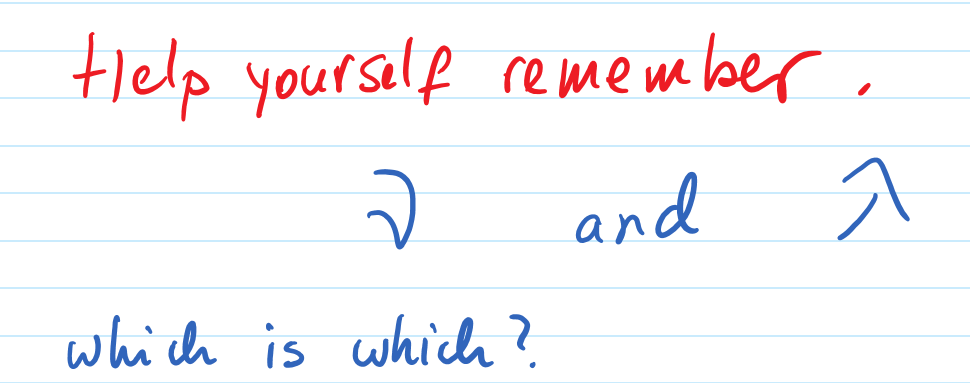 Help yourself remember.
and
which is which?